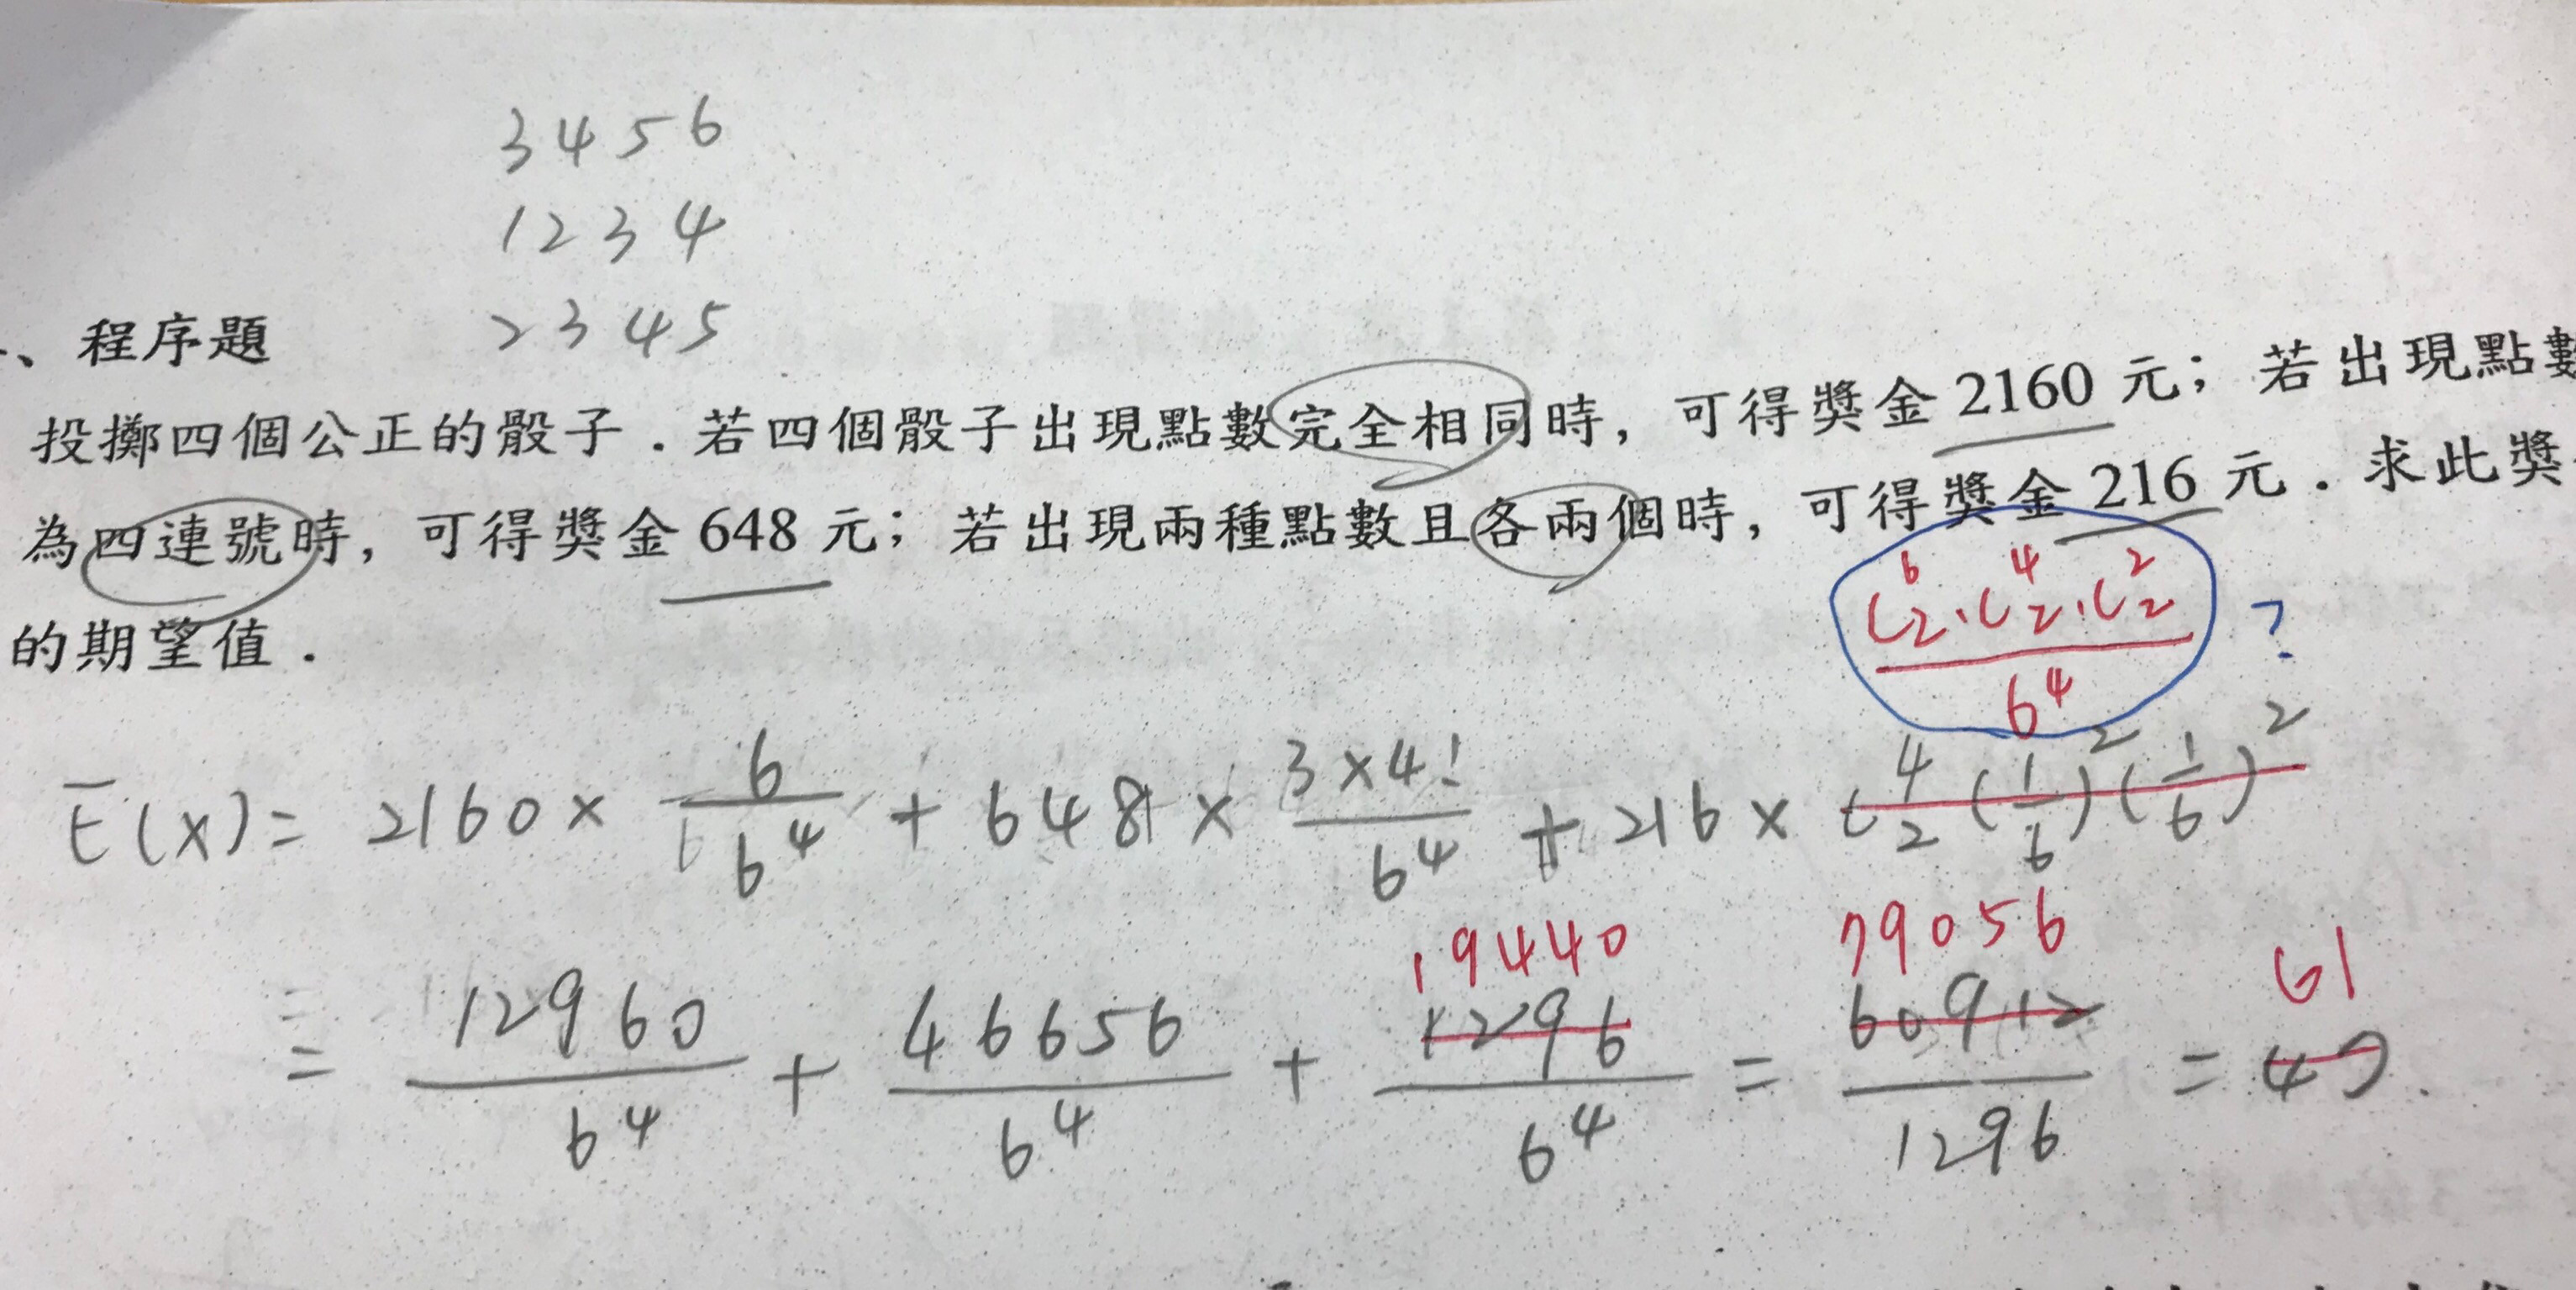 3 4 5 6
1 2 3 4
2 3 4 5
、程序題
投擲四個公正的骰子．若四個骰子出現點數完全相同時，可得獎金 2160 元；若出現點數
為四連號時，可得獎金 648 元；若出現兩種點數且各兩個時，可得獎金 216 元．求此獎
的期望值．
C⁶₂·C⁴₂·C²₂ / 6⁴ ?
E(x) = 2160 × 6/6⁴ + 648 × 3×4!/6⁴ + 216 × C⁴₂(1/6)²(1/6)²
19440 79056 61
= 12960/6⁴ + 46656/6⁴ + 1296/6⁴ = 60912/1296 = 47.